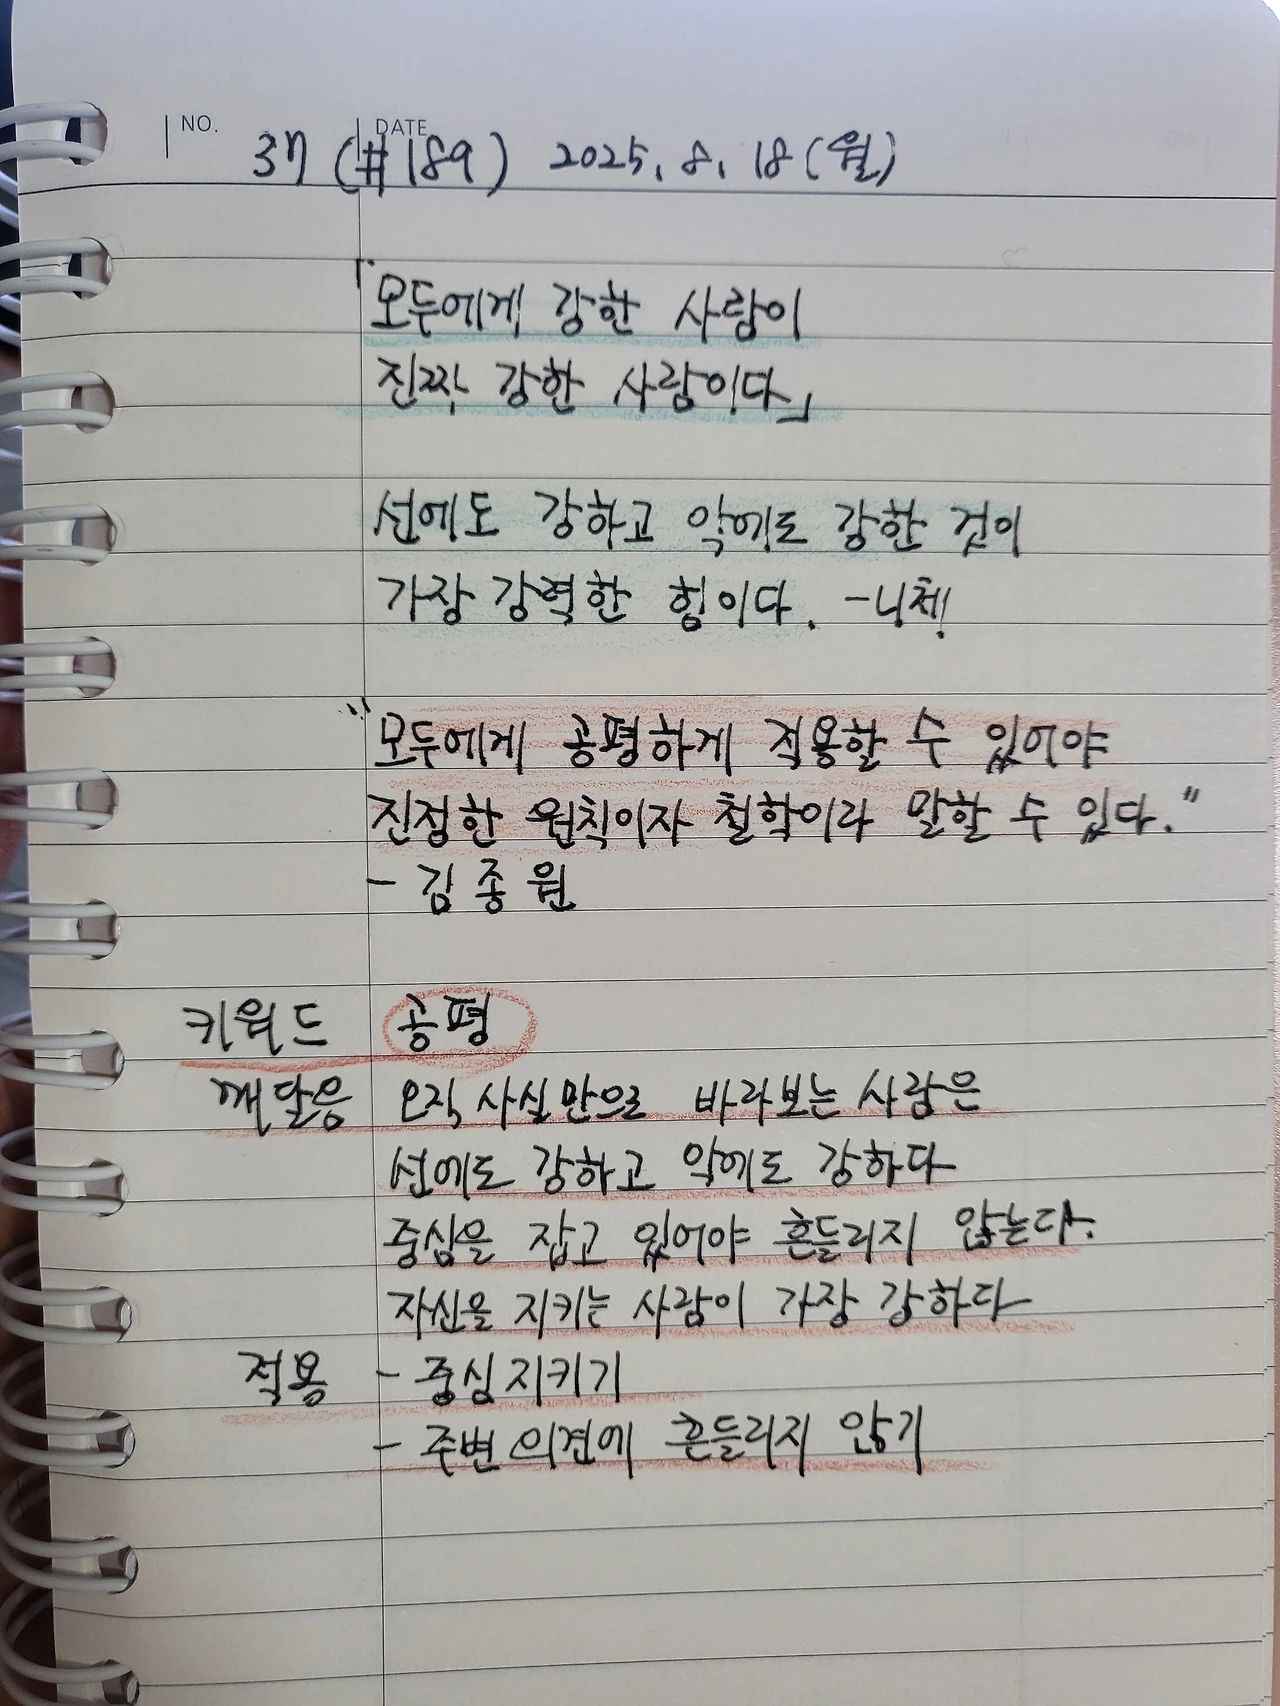 NO.
DATE
37 (#189) 2025. 8. 18 (월)
「모두에게 강한 사람이
진짜 강한 사람이다」
선에도 강하고 악에도 강한 것이
가장 강력한 힘이다. -니체!
"모두에게 공평하게 적용할 수 있어야
진정한 원칙이자 철학이라 말할 수 있다."
- 김종원
키워드 공평
깨달음 오직 사실만으로 바라보는 사람은
선에도 강하고 악에도 강하다
중심을 잡고 있어야 흔들리지 않는다.
자신을 지키는 사람이 가장 강하다
적용 - 중심 지키기
- 주변 의견에 흔들리지 않기